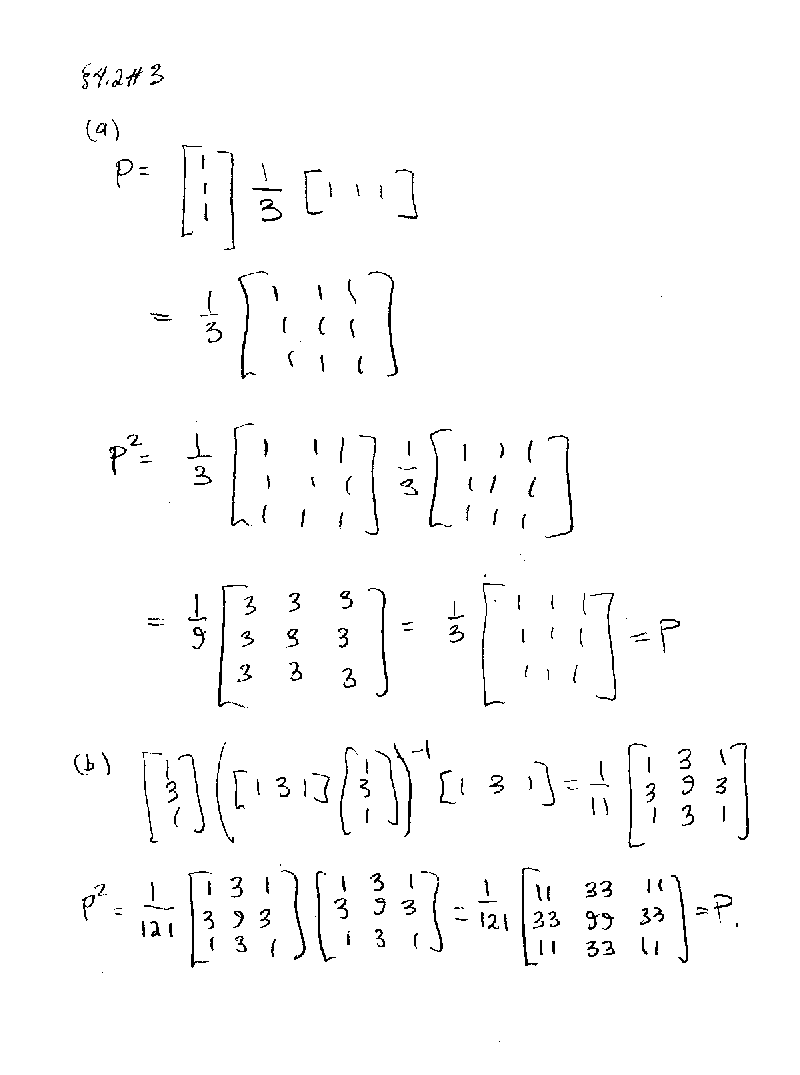 §4.2#3
(a)
P = [1; 1; 1] 1/3 [1 1 1]
= 1/3 [1 1 1; 1 1 1; 1 1 1]
P² = 1/3 [1 1 1; 1 1 1; 1 1 1] 1/3 [1 1 1; 1 1 1; 1 1 1]
= 1/9 [3 3 3; 3 3 3; 3 3 3] = 1/3 [1 1 1; 1 1 1; 1 1 1] = P
(b) [1; 3; 1] ([1 3 1] [1; 3; 1])⁻¹ [1 3 1] = 1/11 [1 3 1; 3 9 3; 1 3 1]
P² = 1/121 [1 3 1; 3 9 3; 1 3 1] [1 3 1; 3 9 3; 1 3 1] = 1/121 [11 33 11; 33 99 33; 11 33 11] = P.